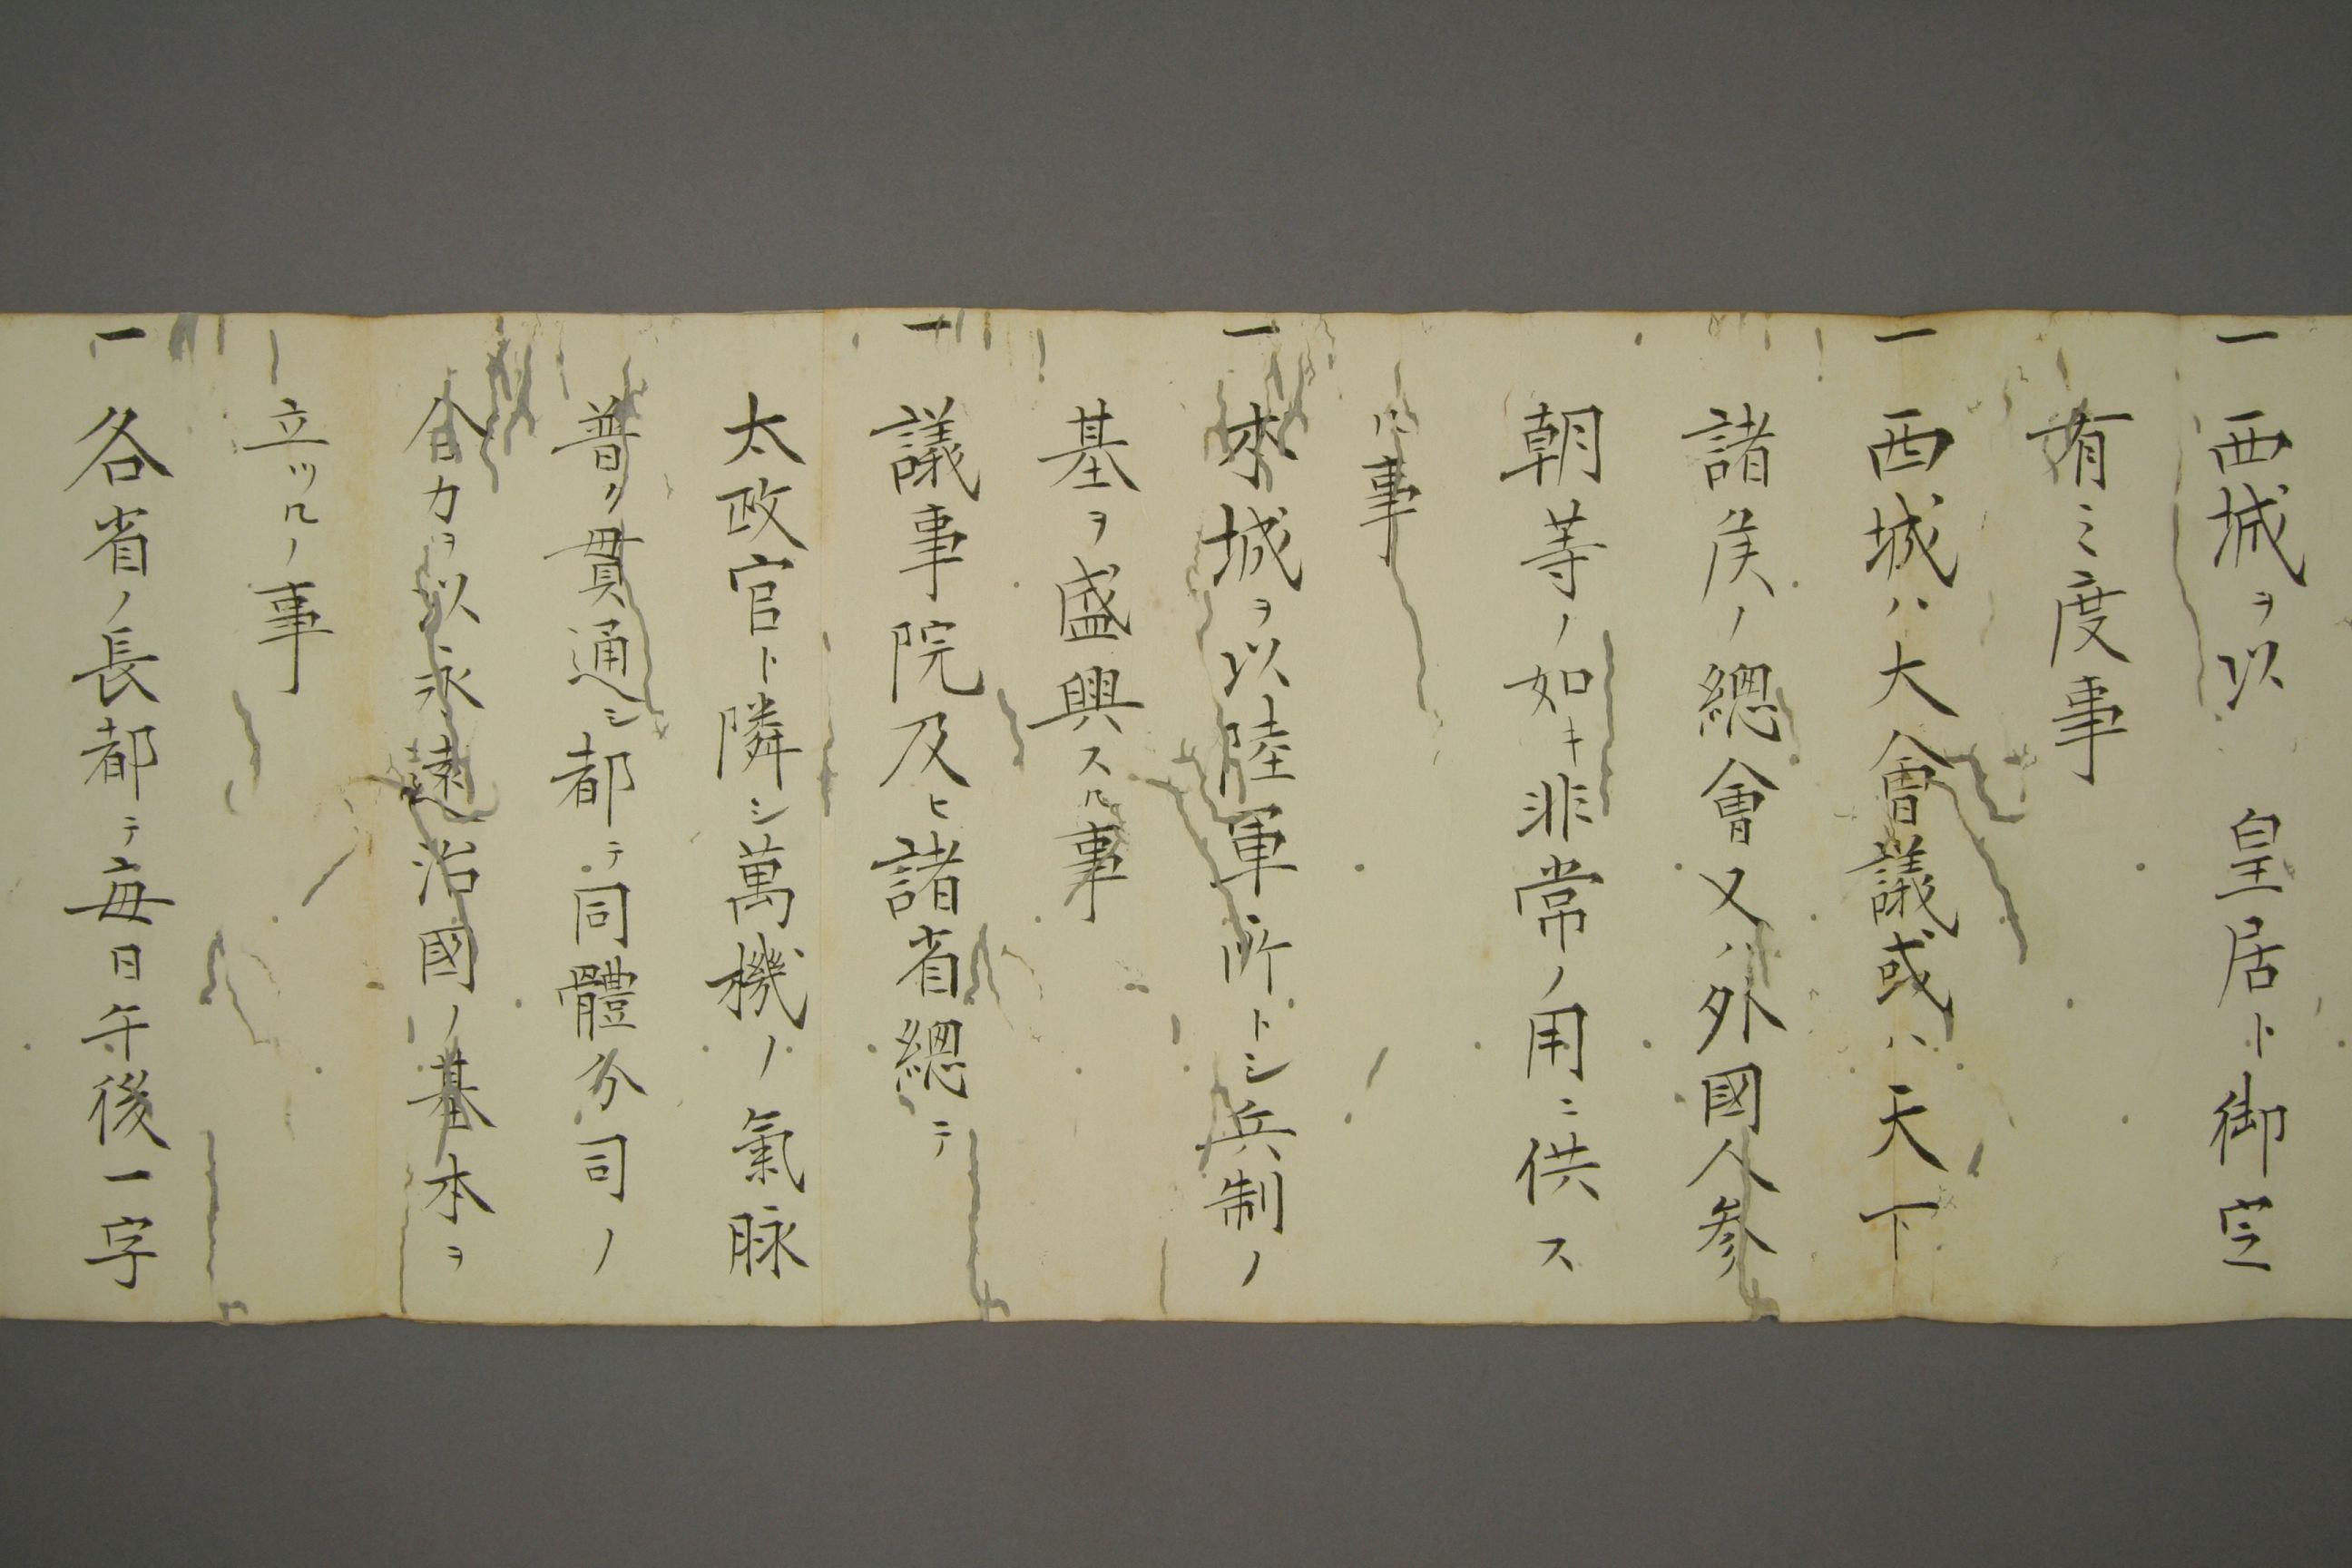 一西城ヲ以　皇居ト御定
有之度事
一西城ハ大會議或ハ天下
諸矦ノ總會又ハ外國人参
朝等ノ如キ非常ノ用ニ供ス
ル事
一本城ヲ以陸軍所トシ兵制ノ
基ヲ盛興スル事
一議事院及ヒ諸省總テ
太政官ト隣シ萬機ノ氣脉
普ク貫通シ都テ同體分司ノ
合力ヲ以永遠治國ノ基本ヲ
立ツルノ事
一各省ノ長都テ毎日午後一字